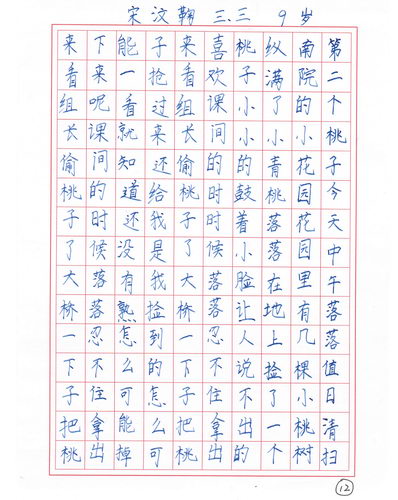 宋汶鞠 三.三 9岁
第二个桃子今天中午落落值日清扫
南院的小花园花园里有几棵小桃树
纵满了小青桃落落在地上捡了一个
桃子小小的鼓着小脸让人说不出的
喜欢课间的时时候落落忍不住拿出
来看组长偷桃子了大桥一下子把桃
子抢过来还给我是我捡到的怎么可
能一看就知道还没有熟怎么可能掉
下来呢课间的时候落落忍不住拿出
来看组长偷桃子了大桥一下子把桃
12